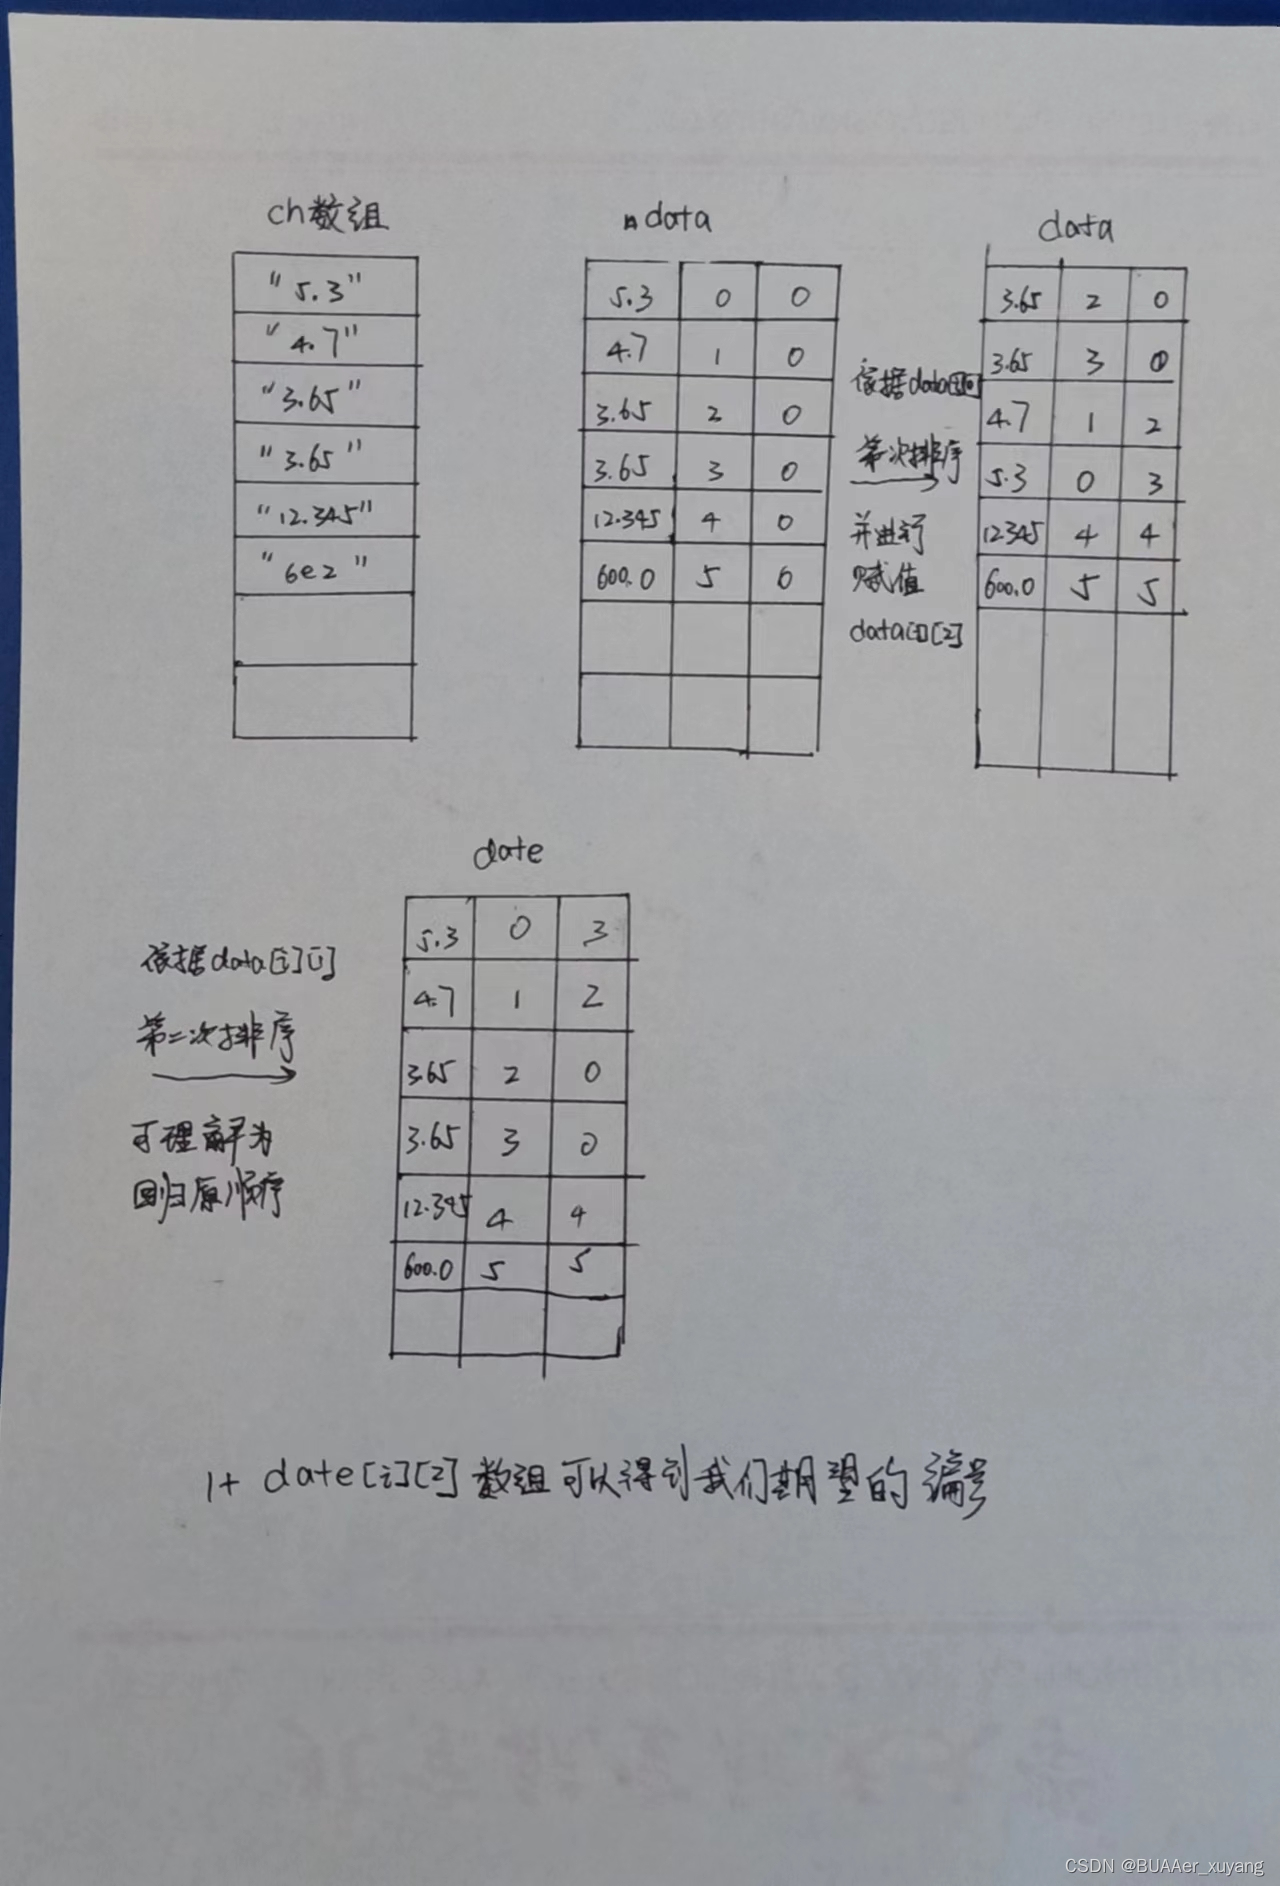 ch数组
"5.3"
"4.7"
"3.65"
"3.65"
"12.345"
"6e2"
data
5.3 0 0
4.7 1 0
3.65 2 0
3.65 3 0
12.345 4 0
600.0 5 0
依据data[i][0]
第一次排序
并进行
赋值
data[i][2]
data
3.65 2 0
3.65 3 0
4.7 1 2
5.3 0 3
12.345 4 4
600.0 5 5
date
依据data[i][1]
第二次排序
可理解为
回归原顺序
5.3 0 3
4.7 1 2
3.65 2 0
3.65 3 0
12.345 4 4
600.0 5 5
1+ date[i][2]数组可以得到我们期望的编号
CSDN @BUAAer_xuyang